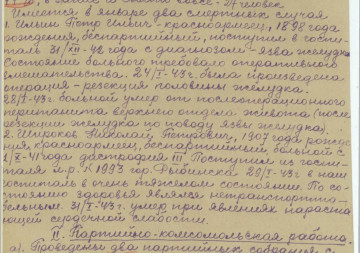 человек
Имеется в январе два смертных случая
1. Ильин Петр Ильич - красноармеец, 1898 года
рождения, беспартийный, поступил в госпи-
таль 31/XII-42 года с диагнозом - язва желудка
Состояние больного требовало оперативного
вмешательства. 24/I-43г. была произведена
операция - резекция половины желудка.
28/I-43г. больной умер от послеоперационного
перитонита верхнего отдела живота (после
резекции желудка по поводу язвы желудка).
2. Широков Николай Петрович, 1907 года рожде-
ния красноармеец, беспартийный, больной с
1/X-41 года дистрофия III. Поступил из госпи-
таля п.р. № 1993 гор. Рыбинска 28/I-43г. в наш
госпиталь в очень тяжелом состоянии. По со-
стоянию здоровья являлся нетранспорта-
бельным. 31/I-43г. умер при явлениях нараста-
ющей сердечной слабости.
II. Партийно-комсомольская работа.
а). Проведены два партийных собрания с